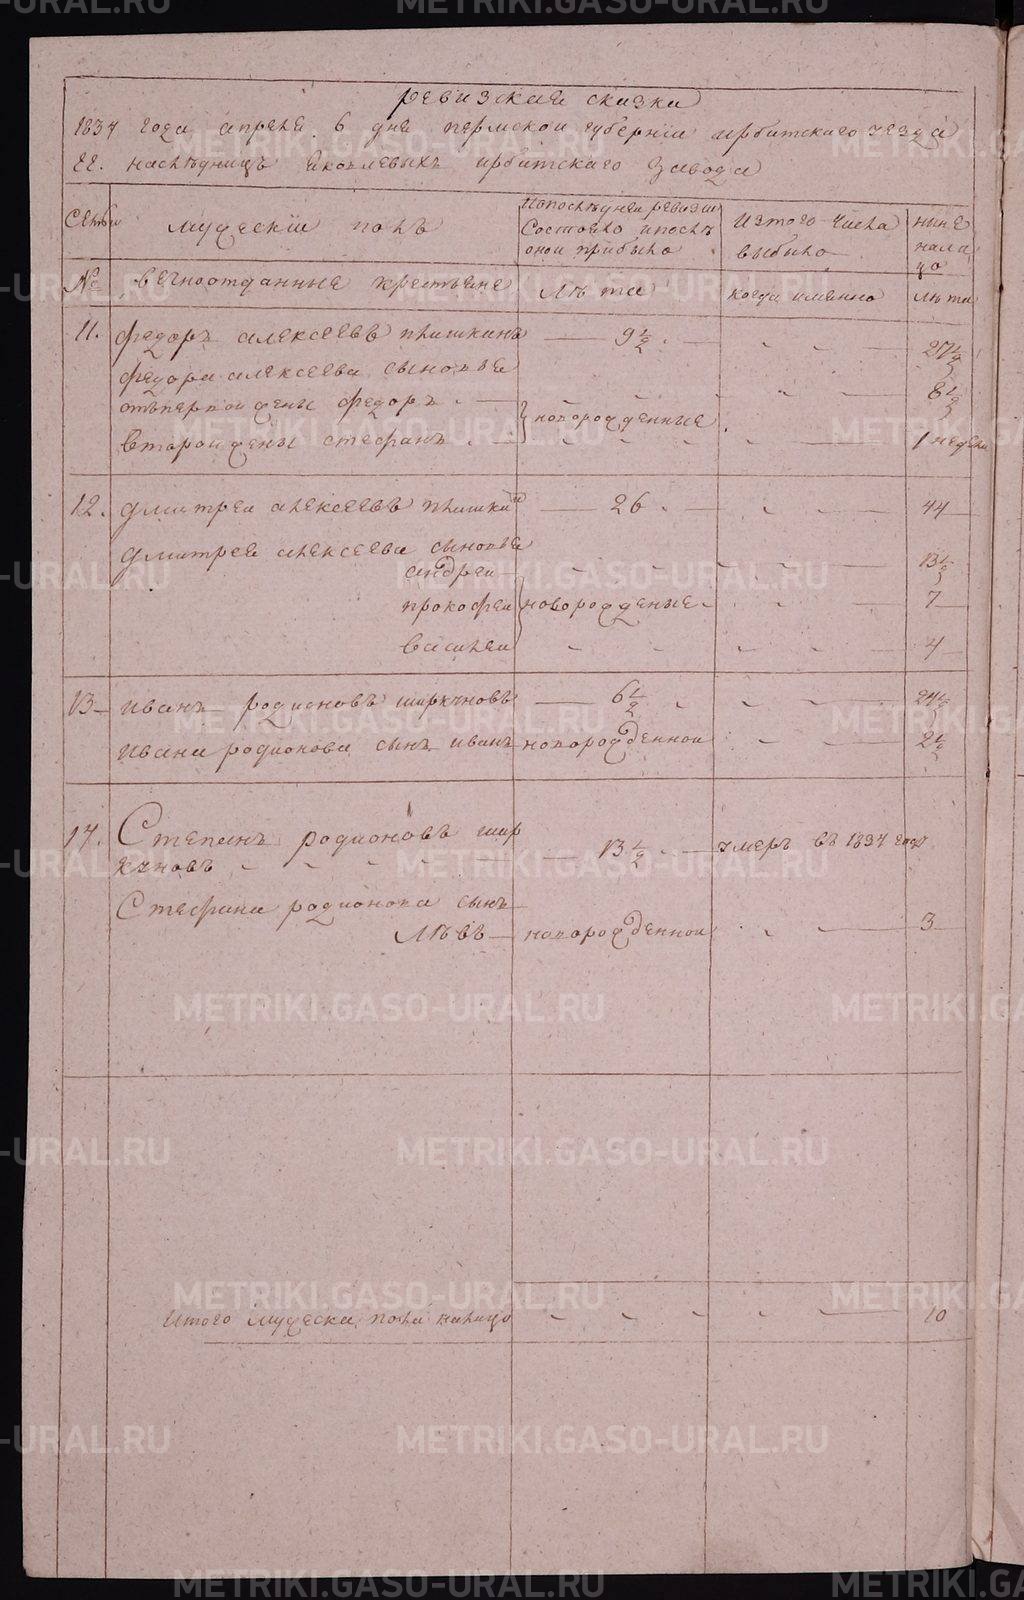 ревизская сказка
1834 года апреля 6 дня пермской губернiи ирбитского уезда
гг. наследницъ Яковлевыхъ ирбитского завода
Семьи
мужескiй полъ
По последней ревизiи
Состояло и после
оной прибыло
Изтого числа
выбыло
ныне
налицо
№
вечноотданные крестьяне
Лѣта
когда именно
лѣта
11. федоръ алексеевъ пьянкинъ 9½ 27½
федора алексеева сыновья
отъ первой жены федоръ 8½
второй жены стефанъ новорожденные 1 недели
12. дмитрей алексеевъ 26 44
дмитрея алексеева сыновья
андрей 13½
прокофей новорожденные 7
василей 4
13 иванъ родионовъ ширкуновъ 6½ 24½
ивана родионова сынъ иванъ новорожденной 2½
14. Степанъ родионовъ шир
куновъ 13½ умеръ въ 1834 году
Стефана родионова сынъ
Лѣвъ новорожденной 3
Итого мужеска пола налицо 10
METRIKI.GASO-URAL.RU